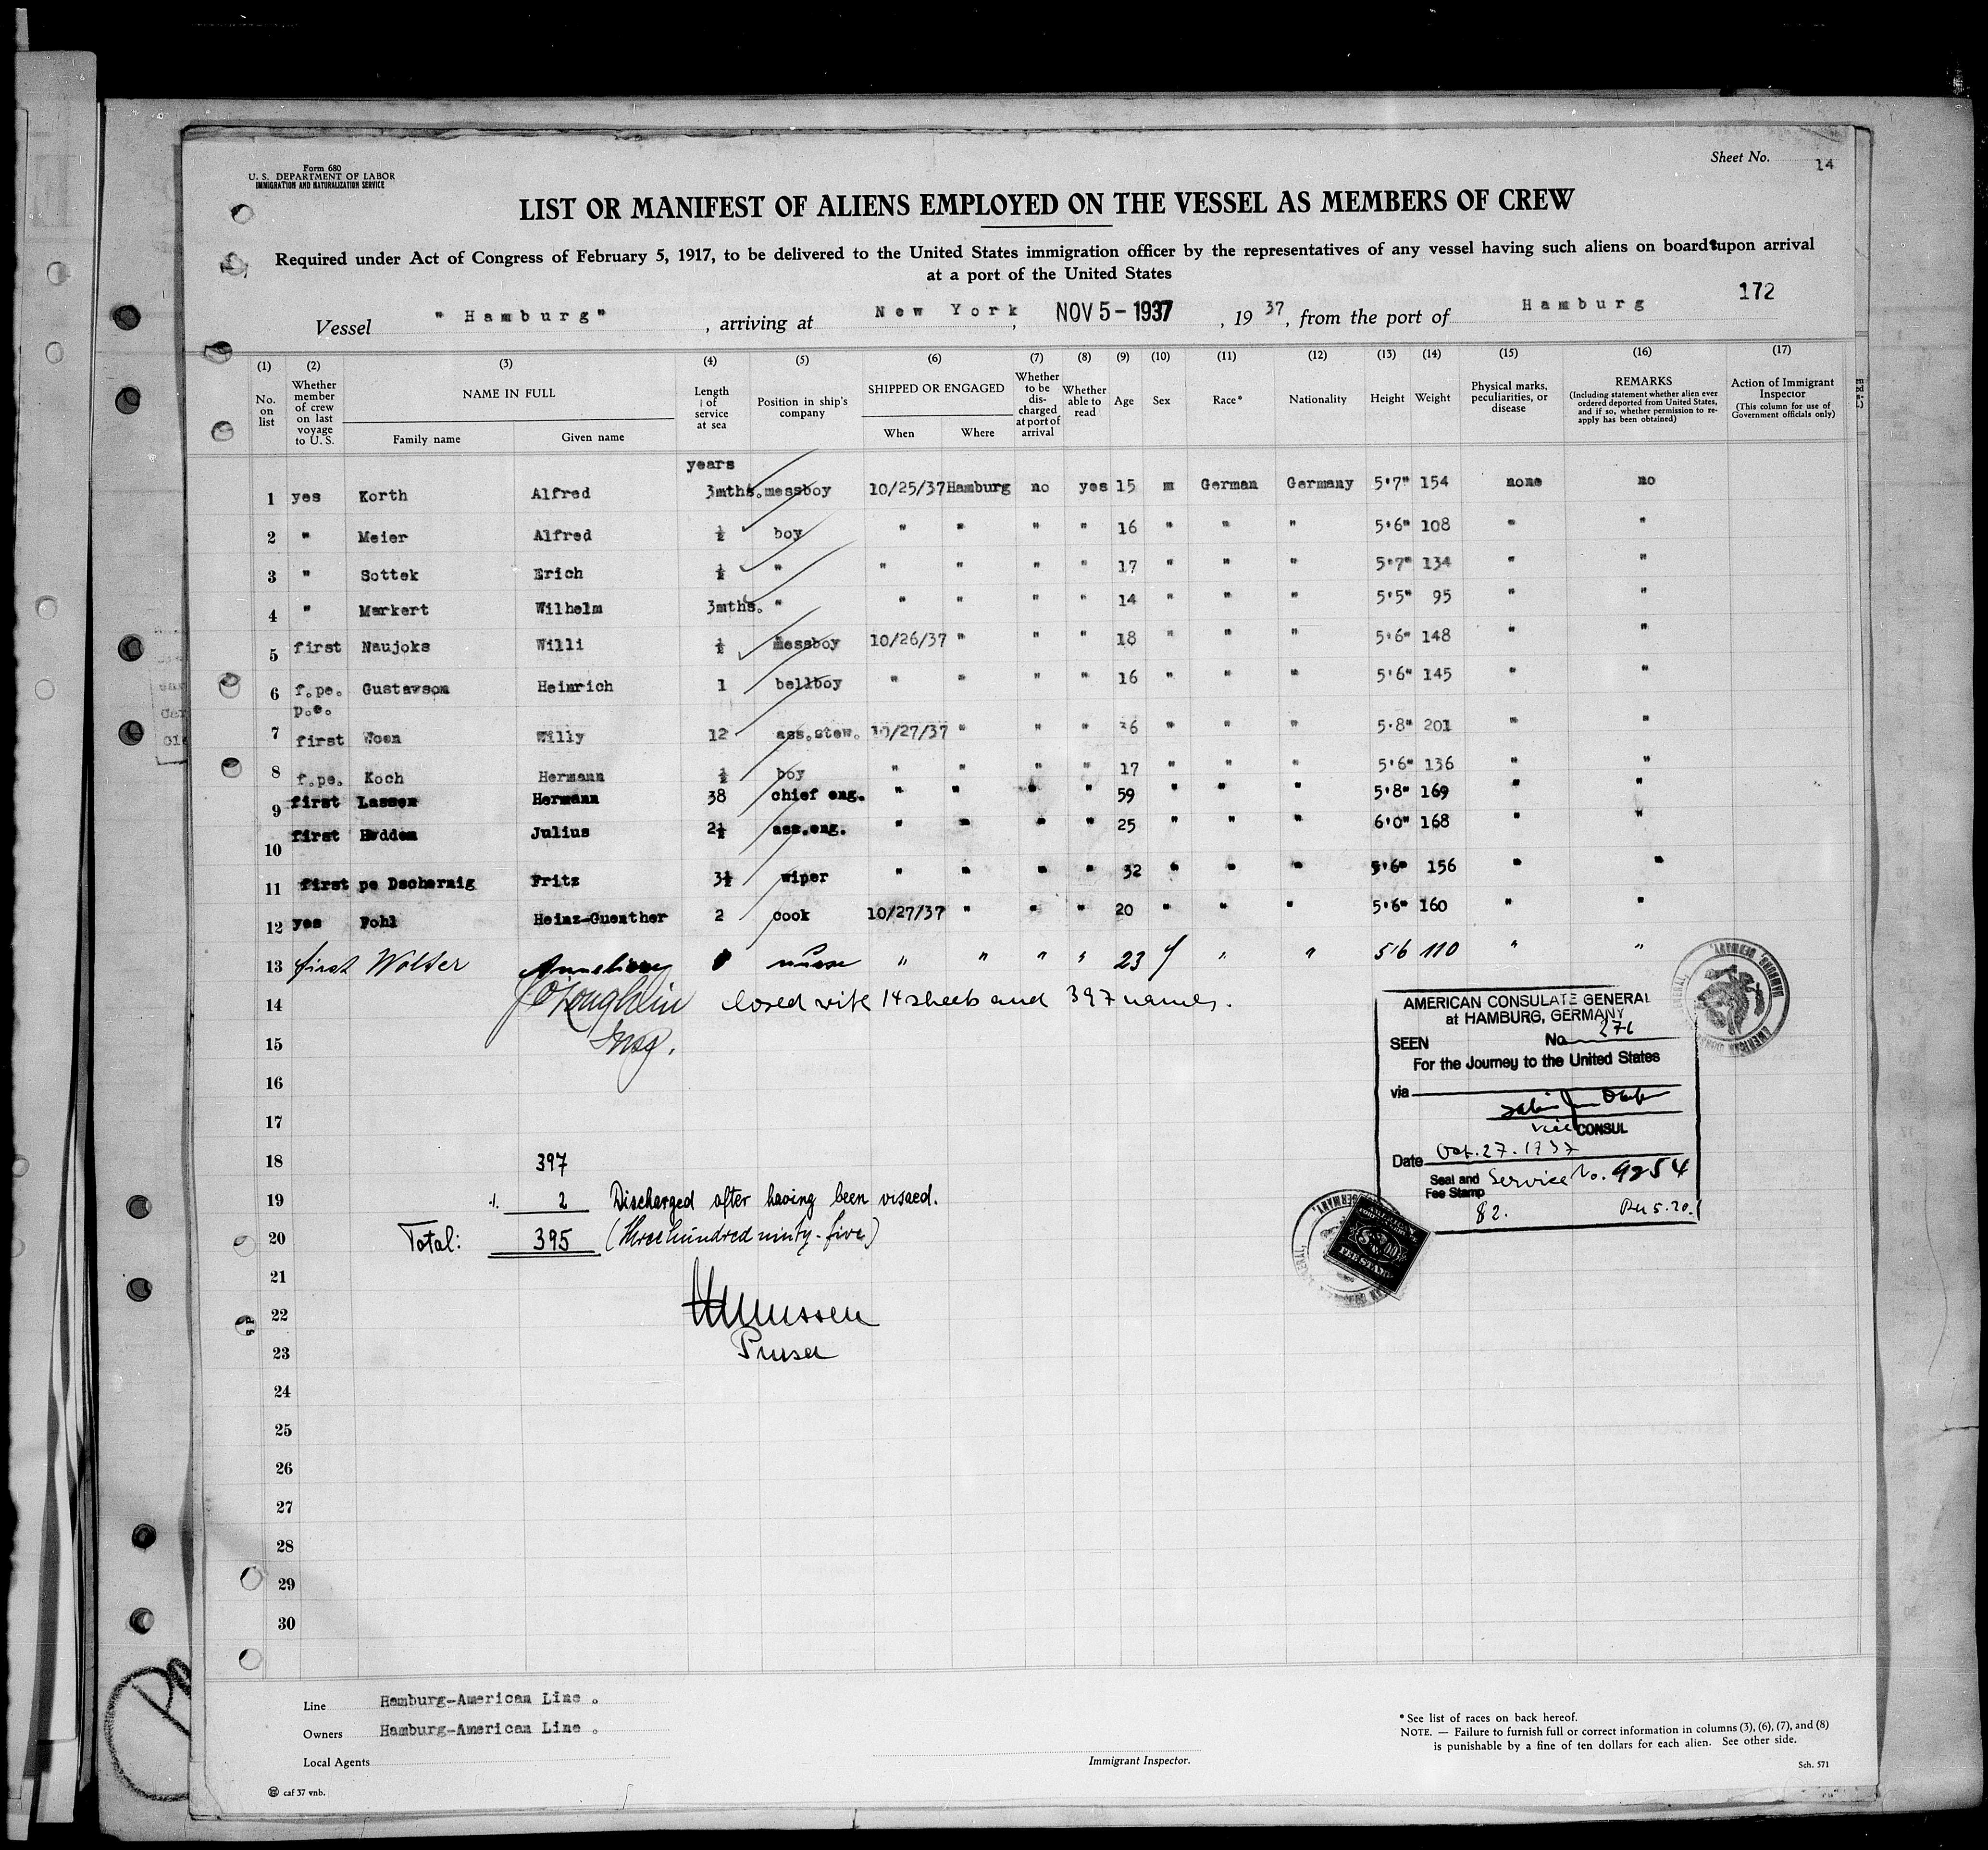 Form 680
U. S. DEPARTMENT OF LABOR
IMMIGRATION AND NATURALIZATION SERVICE
Sheet No. 14
LIST OR MANIFEST OF ALIENS EMPLOYED ON THE VESSEL AS MEMBERS OF CREW
Required under Act of Congress of February 5, 1917, to be delivered to the United States immigration officer by the representatives of any vessel having such aliens on board upon arrival
at a port of the United States
172
Vessel "Hamburg", arriving at New York, NOV 5 - 1937, 1937, from the port of Hamburg
(1) (2) (3) (4) (5) (6) (7) (8) (9) (10) (11) (12) (13) (14) (15) (16) (17)
No. on list
Whether member of crew on last voyage to U. S.
NAME IN FULL
Family name Given name
Length of service at sea
Position in ship's company
SHIPPED OR ENGAGED
When Where
Whether to be discharged at port of arrival
Whether able to read
Age Sex Race* Nationality Height Weight
Physical marks, peculiarities, or disease
REMARKS
(Including statement whether alien ever ordered deported from United States, and if so, whether permission to re-apply has been obtained)
Action of Immigrant Inspector
(This column for use of Government officials only)
years
1 yes Korth Alfred 3mths. messboy 10/25/37 Hamburg no yes 15 m German Germany 5'7" 154 none no
2 " Meier Alfred ½ boy " " " " 16 " " " 5'6" 108 " "
3 " Sottek Erich ½ " " " " " 17 " " " 5'7" 134 " "
4 " Markert Wilhelm 3mths. " " " " " 14 " " " 5'5" 95 " "
5 first Naujoks Willi ½ messboy 10/26/37 " " " 18 " " " 5'6" 148 " "
6 f.pe. Gustavson Heinrich 1 bellboy " " " " 16 " " " 5'6" 145 " "
p.e.
7 first Woen Willy 12 ass.stew. 10/27/37 " " " 36 " " " 5'8" 201 " "
8 f.pe. Koch Hermann ½ boy " " " " 17 " " " 5'6" 136 " "
9 first Lassen Hermann 38 chief eng. " " " " 59 " " " 5'8" 169 " "
10 first Julius 2½ ass.eng. " " " " 25 " " " 6'0" 168 " "
11 first pe Dschernig Fritz 3½ wiper " " " " 32 " " " 5'6" 156 " "
12 yes Pohl Heinz-Guenther 2 cook 10/27/37 " " " 20 " " " 5'6" 160 " "
13 first Wolter Anneliese nurse " " " " 23 f " " 5'6 110 " "
14 J O'Loughlin closed with 14 sheets and 397 names.
15 Insp.
16
17
18 397
19 ./. 2 Discharged after having been visaed.
20 Total: 395 (three hundred ninty-five)
21
22
23 Purser
24
25
26
27
28
29
30
AMERICAN CONSULATE GENERAL
at HAMBURG, GERMANY
SEEN No. 276
For the Journey to the United States
via
Vice CONSUL
Date Oct. 27. 1937
Seal and Fee Stamp Service No. 9254
82.
FEE STAMP
Line Hamburg-American Line.
Owners Hamburg-American Line.
Local Agents
Immigrant Inspector.
* See list of races on back hereof.
NOTE. — Failure to furnish full or correct information in columns (3), (6), (7), and (8)
is punishable by a fine of ten dollars for each alien. See other side.
Sch. 571
caf 37 vnb.